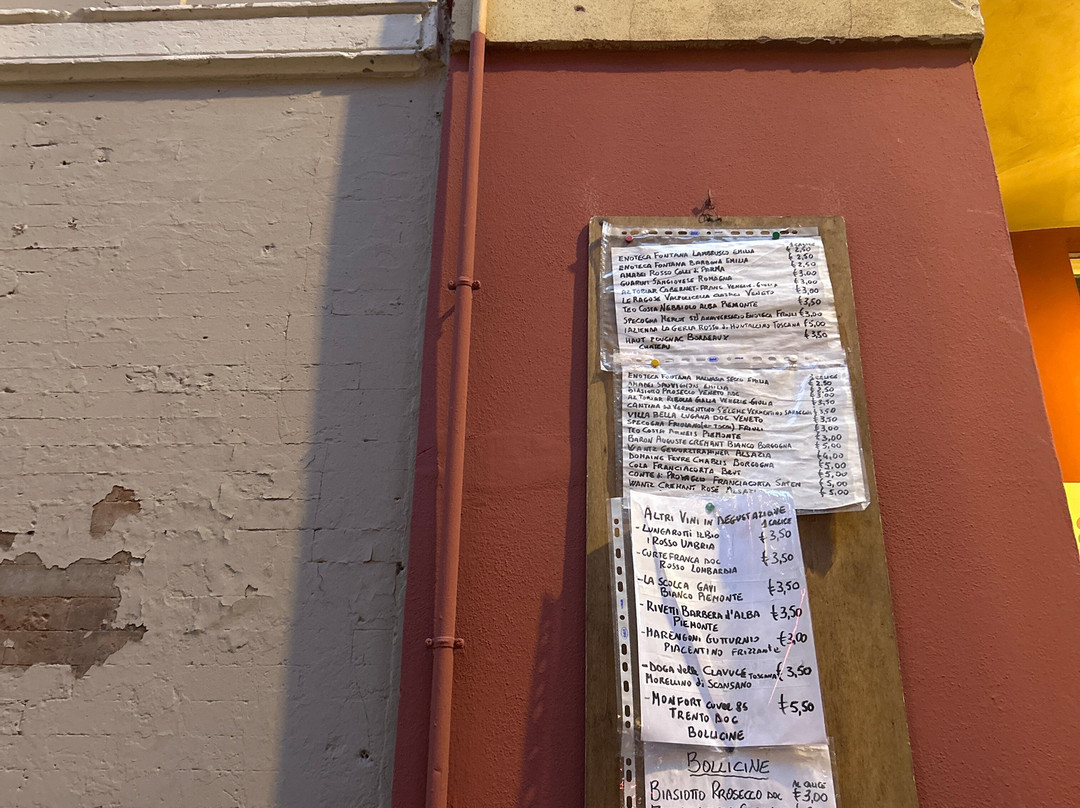 1 CALICE
ENOTECA FONTANA LAMBRUSCO EMILIA € 2,50
ENOTECA FONTANA BARBERA EMILIA € 2,50
AMADEI ROSSO COLLI DI PARMA € 2,50
GUARINI SANGIOVESE ROMAGNA €3,00
ALTURIAR CABERNET-FRANC VENEZIE-GIULIA €3,00
LE RAGOSE VALPOLICELLA CLASSICO VENETO €3,00
TEO COSTA NEBBIOLO ALBA PIEMONTE €3,50
SPECOGNA MERLOT ANNIVERSARIO ENOTECA FRIULI €3,00
LA GERLA ROSSO di MONTALCINO TOSCANA €5,00
HAUT POUGNAC BORDEAUX €3,50
CHATEAU
1 CALICE
ENOTECA FONTANA MALVASIA SECCO EMILIA € 2,50
AMADEI SAUVIGNON EMILIA € 2,50
BIASIOTTO PROSECCO VENETO DOC € 3,00
RIBOLLA GIALLA VENEZIE GIULIA € 3,50
CANTINA SU VERMENTINO SELEME VERMENTINO SARDEGNA €3,50
VILLA BELLA LUGANA DOC VENETO € 3,50
SPECOGNA FRIULANO (ex TOCAI) FRIULI € 3,00
TEO COSTA ARNEIS PIEMONTE € 3,00
BARON AUGUSTE CREMANT BIANCO BORGOGNA € 5,00
WANTZ GEWURZTRAMINER ALSAZIA € 4,00
DOMAINE FEVRE CHABLIS BORGOGNA € 5,00
COLA FRANCIACORTA BRUT € 5,00
CONTE di PROVAGLIO FRANCIACORTA SATEN € 5,00
WANTZ CREMANT ROSÉ ALSAZIA € 5,00
ALTRI VINI IN DEGUSTAZIONE
1 CALICE
- LUNGAROTTI IL BIO € 3,50
ROSSO UMBRIA
- CURTEFRANCA DOC € 3,50
ROSSO LOMBARDIA
- LA SCOLCA GAVI € 3,50
BIANCO PIEMONTE
- RIVETTI BARBERA d'ALBA € 3,50
PIEMONTE
- MARENGONI GUTTURNIO € 3,00
PIACENTINO FRIZZANTE
- DOGA delle CLAVULE TOSCANA € 3,50
MORELLINO di SCANSANO
- MONFORT CUVEE 85 € 5,50
TRENTO DOC
BOLLICINE
BOLLICINE
AL CALICE
BIASIOTTO PROSECCO DOC € 3,00